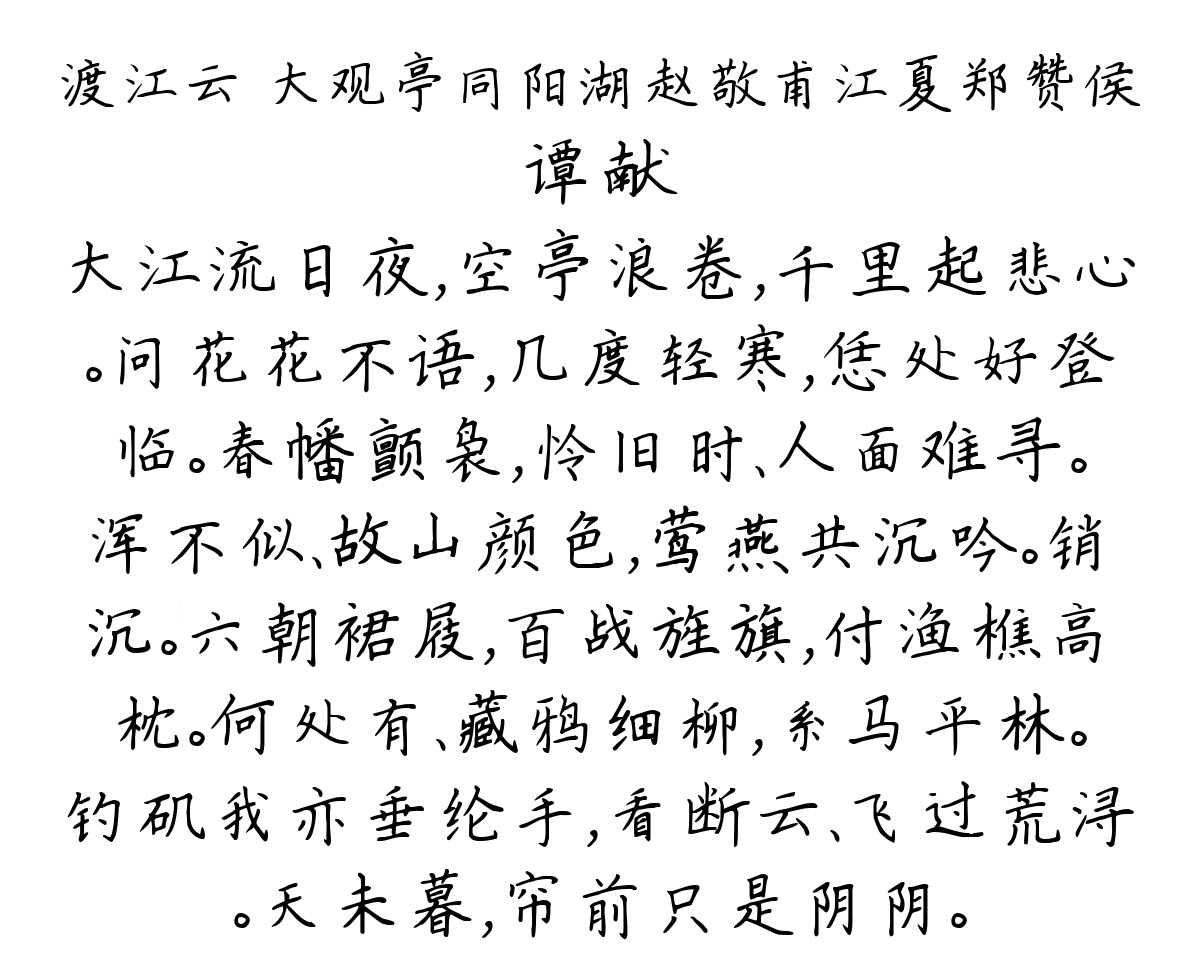 渡江云 大观亭同阳湖赵敬甫江夏郑赞侯
谭献
大江流日夜,空亭浪卷,千里起悲心
。问花花不语,几度轻寒,恁处好登
临。春幡颤袅,怜旧时、人面难寻。
浑不似、故山颜色,莺燕共沉吟。销
沉。六朝裙屐,百战旌旗,付渔樵高
枕。何处有、藏鸦细柳,系马平林。
钓矶我亦垂纶手,看断云、飞过荒浔
。天未暮,帘前只是阴阴。